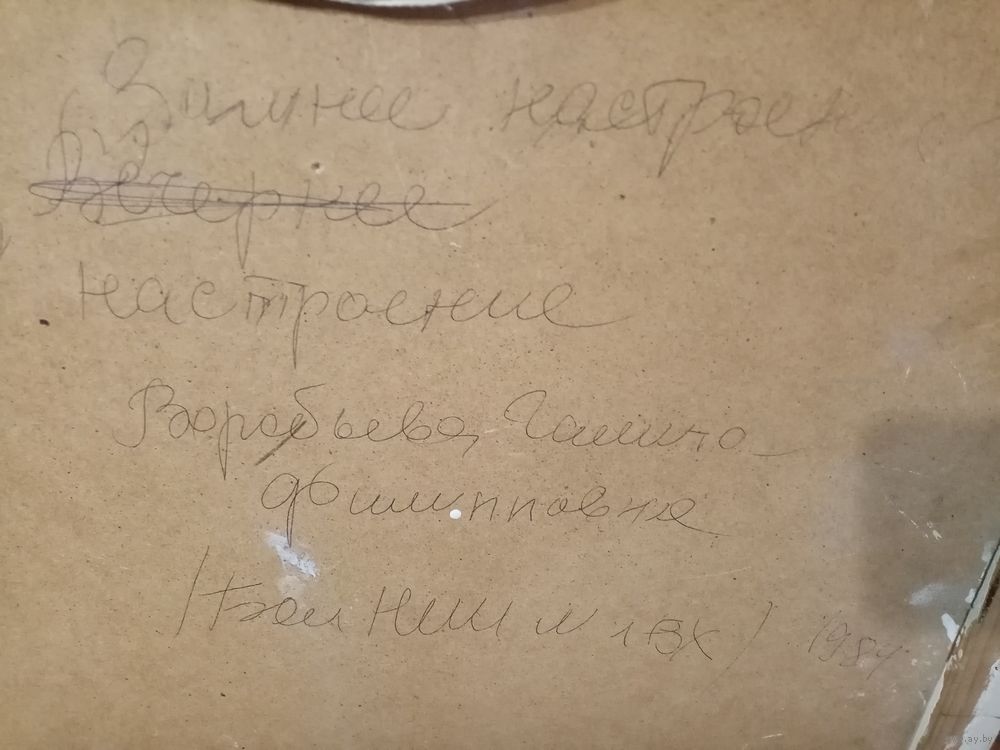 Зимнее настроен
Вечернее
настроение
Воробьева Галина
Филипповна
/БелНИИ 1984
ay.by